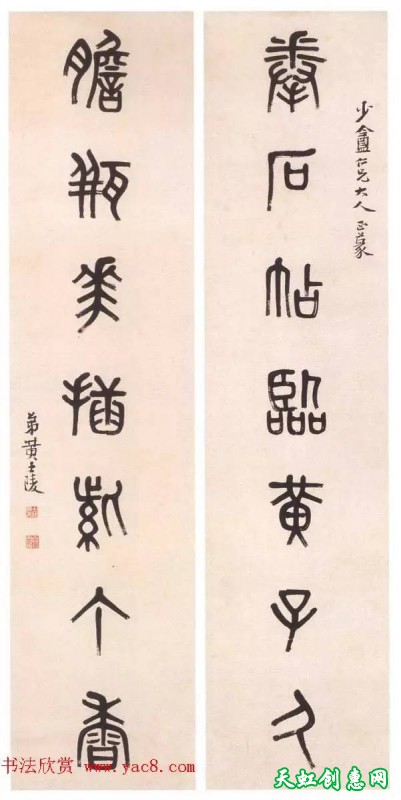 少盦仁兄大人正篆
拳石帖臨黄子久
膽瓶花插紫丁香
弟黄士陵
书法欣赏 www.yac8.com
天虹创意网